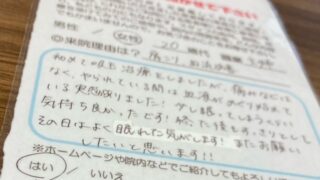 せて下さい
男性 / 女性 20 歳代 職業 主婦
◎来院理由は? 肩こり、血流改善
初めて吸玉治療をしましたが、痛みなどは
なく、やられている間は血液がめぐり始めて
いる実感がありました!少し眠ってしまうくらい
気持ち良かったです!終った後もすっきりとして
その日はよく眠れた気がします!またお願い
したいと思います!!
※ホームページや院内などでご紹介してもよろしいで
はい / いいえ